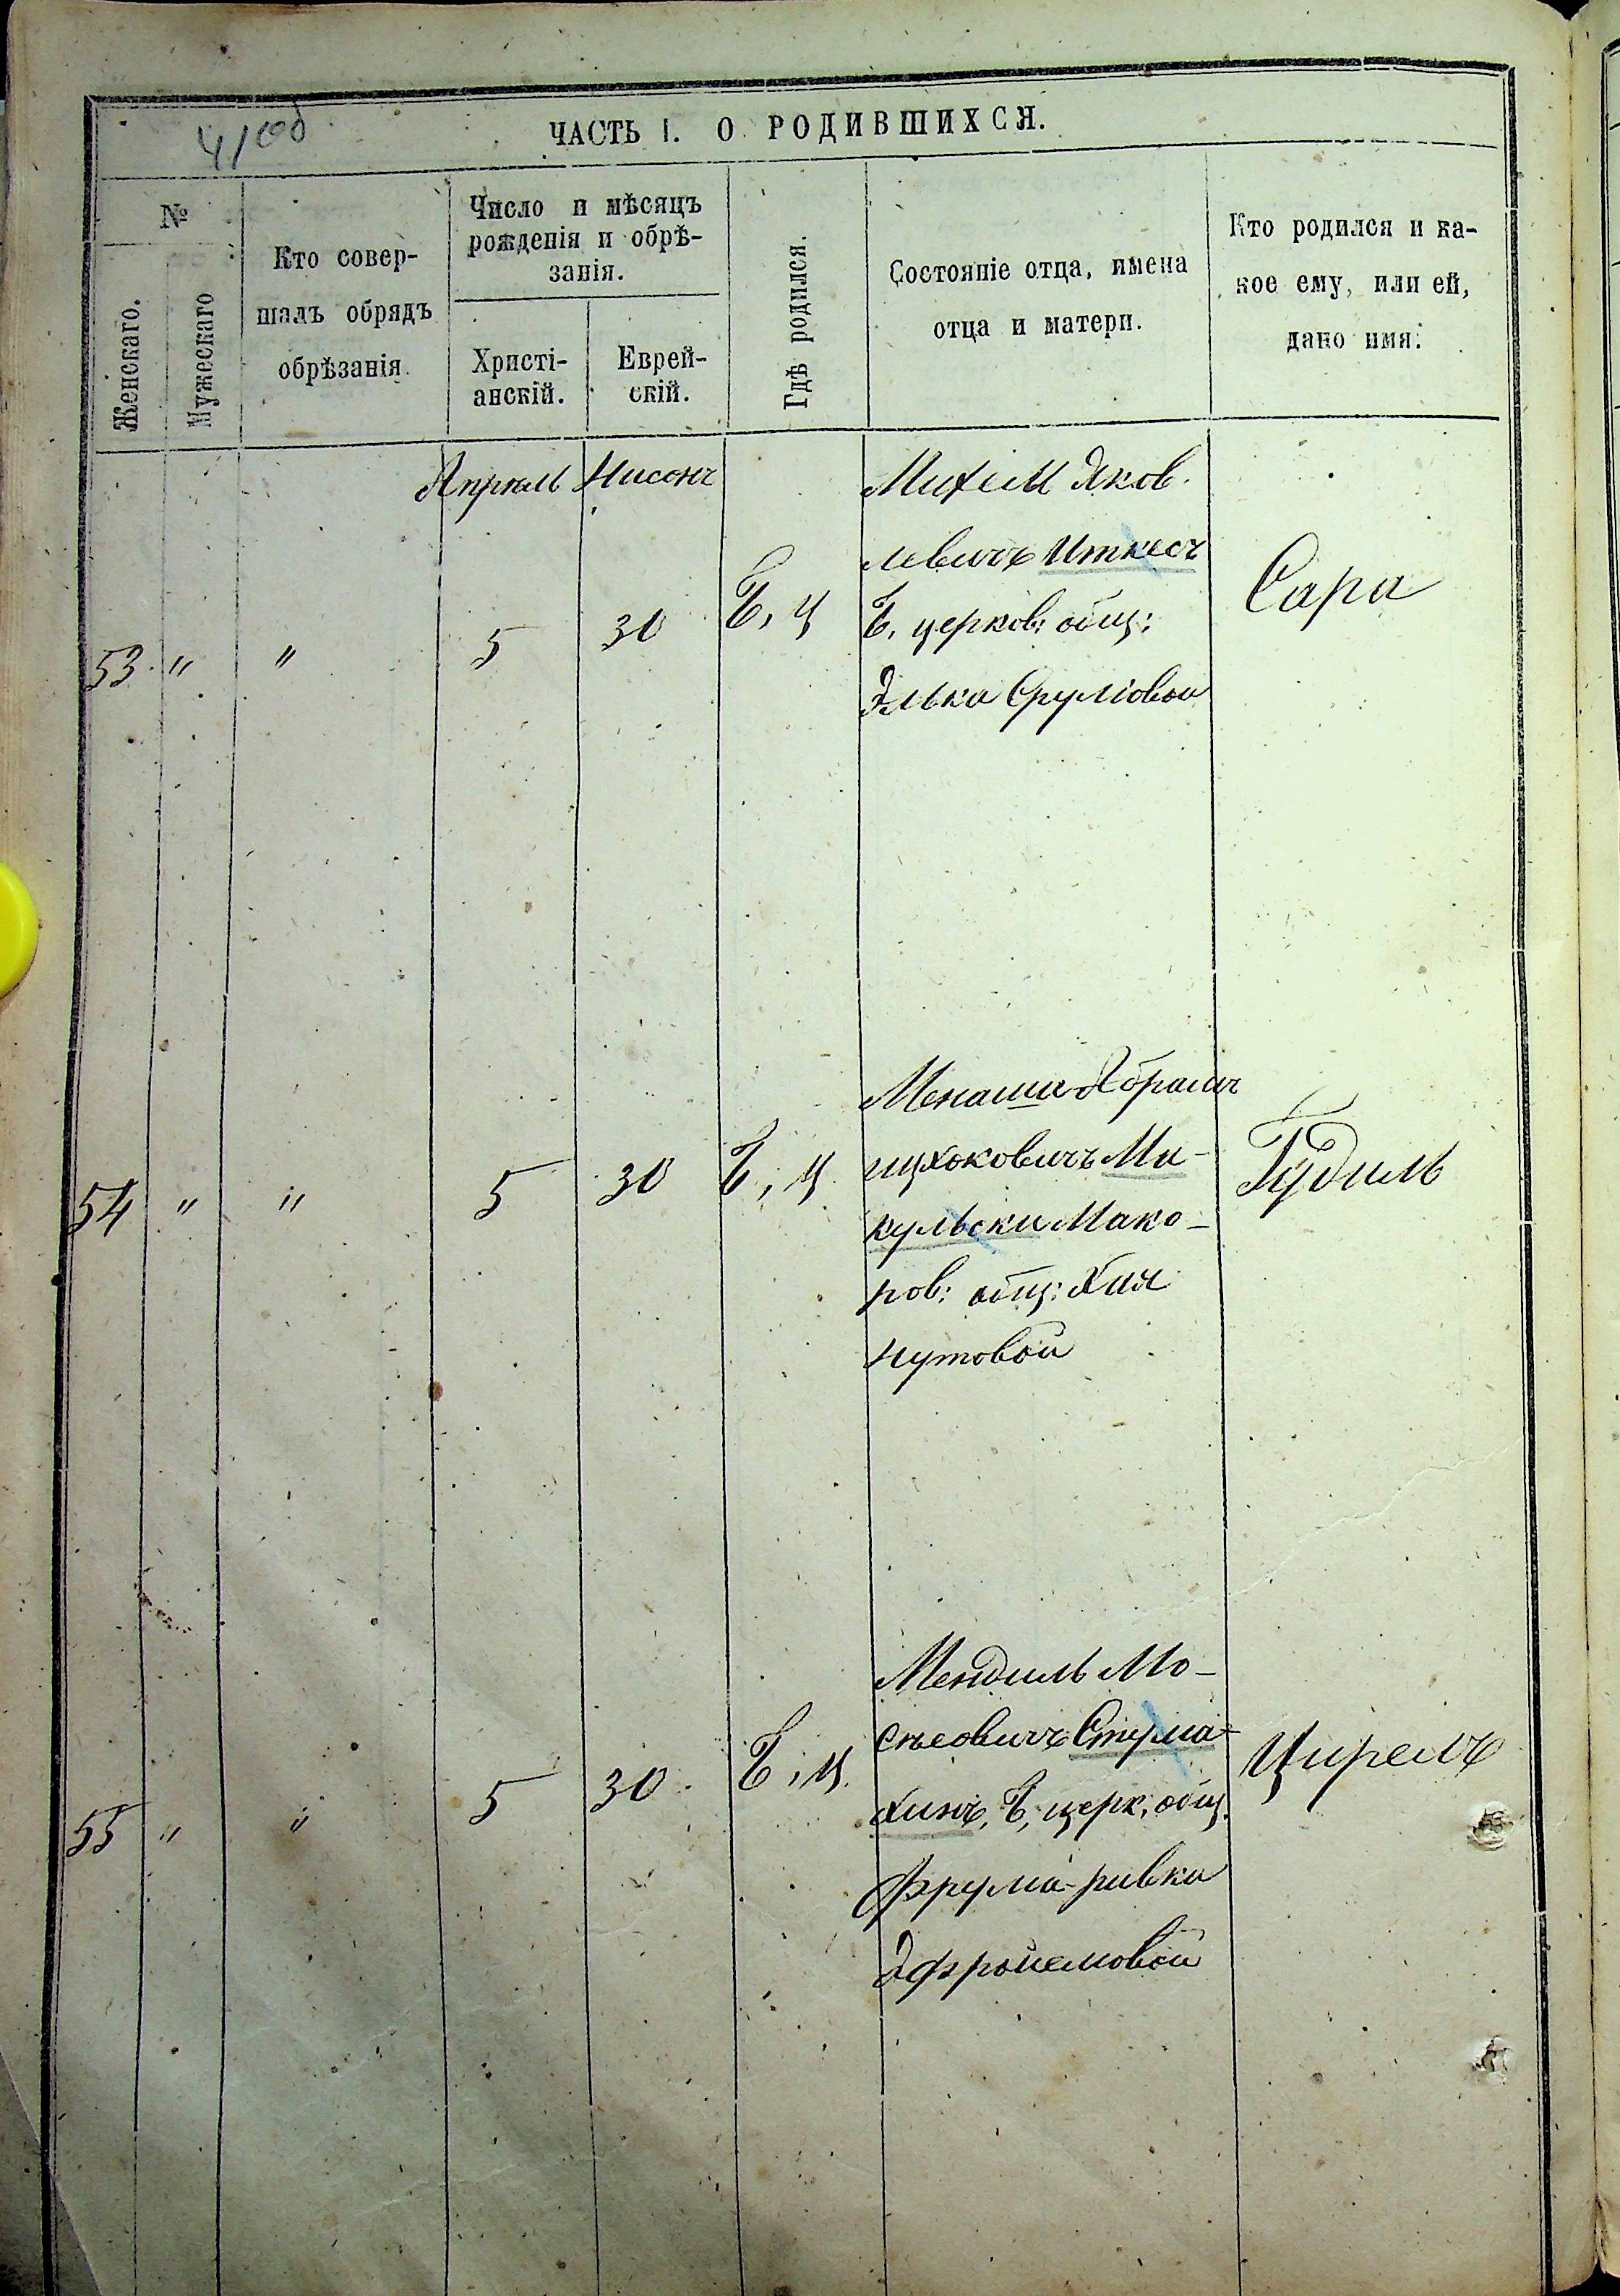 41об
ЧАСТЬ I. О РОДИВШИХСЯ.
№
Женскаго.
Мужескаго
Кто совер-
шалъ обрядъ
обрѣзанія.
Число и мѣсяцъ
рожденія и обрѣ-
занія.
Христі-
анскій.
Еврей-
скій.
Гдѣ родился.
Состояніе отца, имена
отца и матери.
Кто родился и ка-
кое ему, или ей,
дано имя.
Апрель Нисонъ
53 " " 5 30 Б, Ц
Яков.
левичъ Иткесъ
Б. церков: общ:
Элька Срулiовой
Сара
54 " " 5 30 Б, Ц
Менаша Абрамъ
ицхоковичъ Ми-
кульски Мако-
ров: общ: Хая
Нутовой
Гудиль
55 " " 5 30 Б, Ц.
Мендиль Мо-
Стрма-
хинъ, Б, церк, общ.
Фрума-ривка
Эфроимовой
Цирелъ